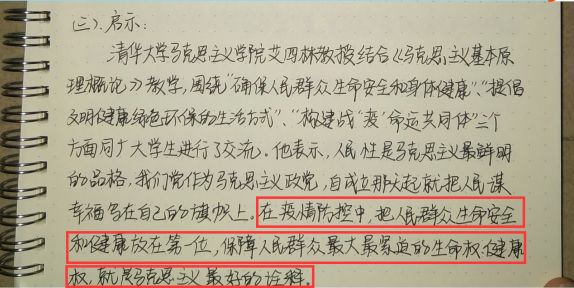 (三).启示:
清华大学马克思主义学院艾四林教授结合《马克思主义基本原
理概论》教学,围绕“确保人民群众生命安全和身体健康”、“提倡
文明健康绿色环保的生活方式”、“构建战“疫”命运共同体”三个
方面同广大学生进行了交流。他表示,人民性是马克思主义最鲜明
的品格,我们党作为马克思主义政党,自成立那天起就把人民谋
幸福写在自己的旗帜上。在疫情防控中,把人民群众生命安全
和健康放在第一位,保障人民群众最大最紧迫的生命权、健康
权,就是马克思主义最好的诠释。